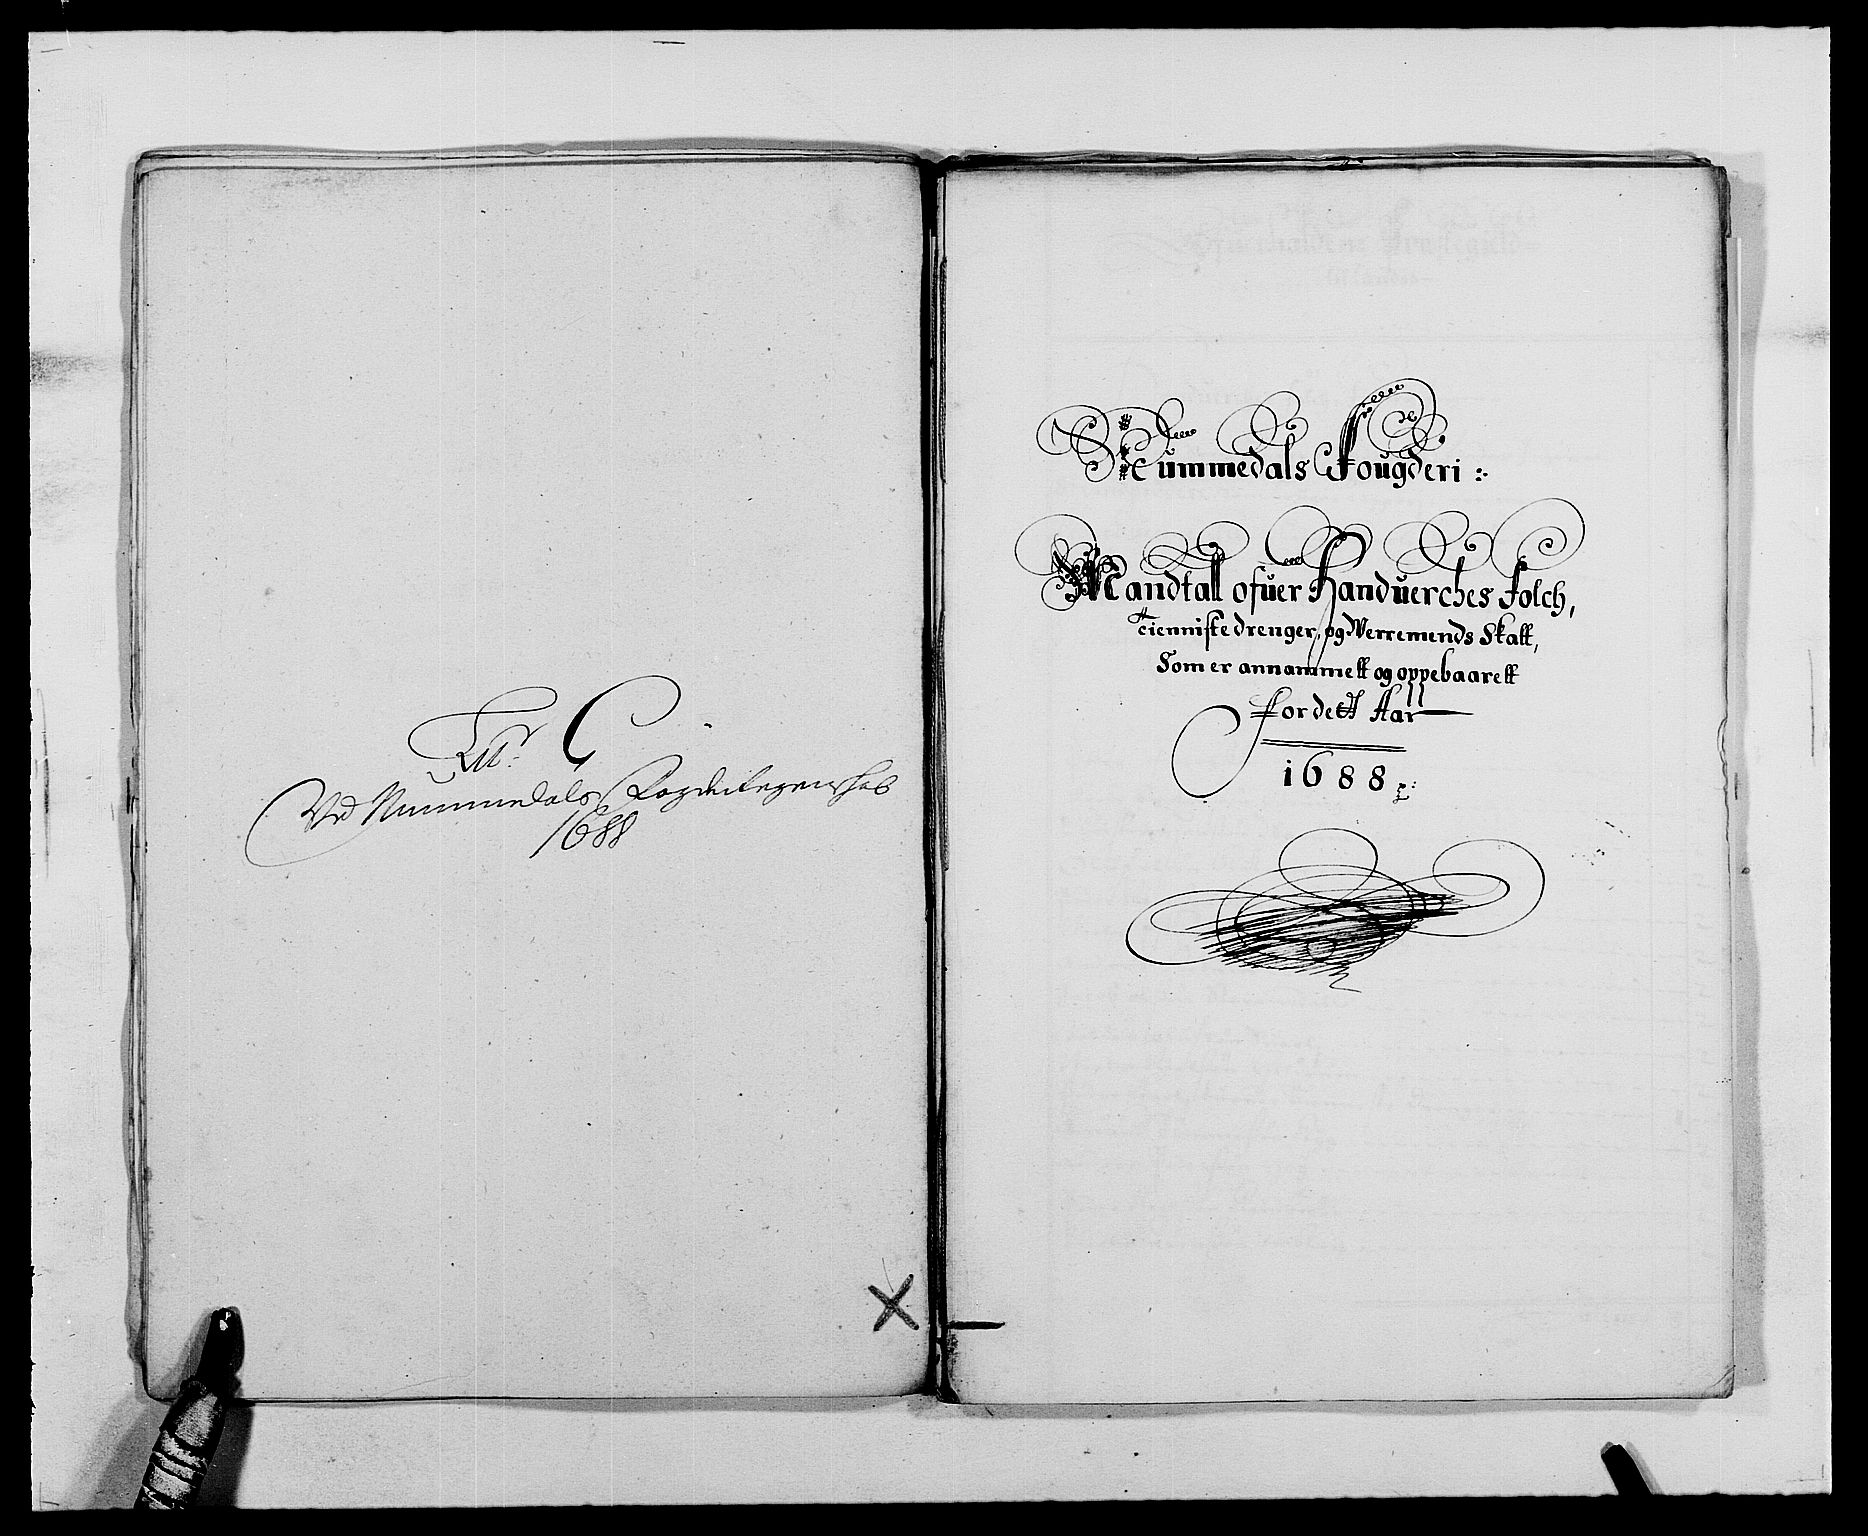 Litr: C
Ved Nummedals Fogderiegenskab
1688
Nummedals Fougderi:
Mandtall ofuer Handuerches Folch,
tiennistedrenger, og Werremends Skatt,
Som er annammett og oppebaarett
for dett Aar
1688